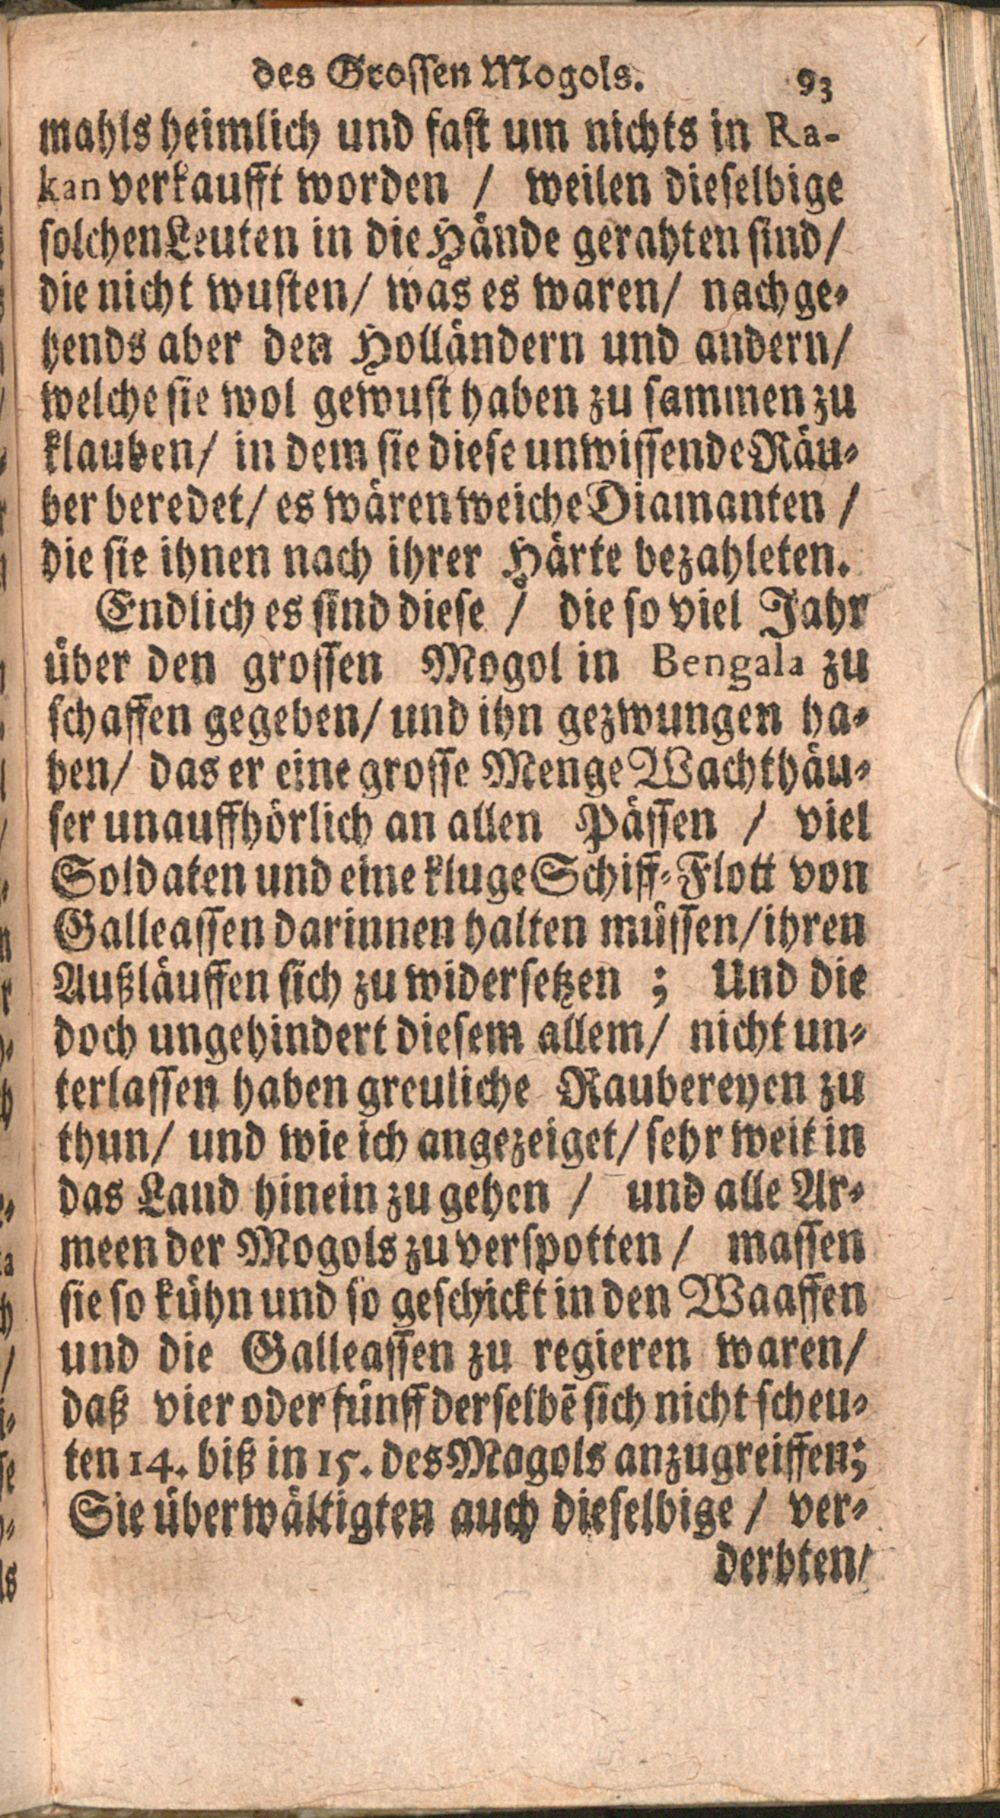 des Grossen Mogols. 93
mahls heimlich und fast um nichts in Ra-
kan verkaufft worden / weilen dieselbige
solchen Leuten in die Hände gerahten sind/
die nicht wusten/ was es waren/ nachge-
hends aber den Holländern und andern/
welche sie wol gewust haben zu sammen zu
klauben/ in dem sie diese unwissende Räu-
ber beredet/ es wären weiche Diamanten /
die sie ihnen nach ihrer Härte bezahleten.
Endlich es sind diese / die so viel Jahr
über den grossen Mogol in Bengala zu
schaffen gegeben/ und ihn gezwungen ha-
ben/ das er eine grosse Menge Wachthäu-
ser unauffhörlich an allen Pässen / viel
Soldaten und eine kluge Schiff-Flott von
Galleassen darinnen halten müssen/ ihren
Außläuffen sich zu widersetzen ; Und die
doch ungehindert diesem allem/ nicht un-
terlassen haben greuliche Raubereyen zu
thun/ und wie ich angezeiget/ sehr weit in
das Land hinein zu gehen / und alle Ar-
meen der Mogols zu verspotten / massen
sie so kühn und so geschickt in den Waaffen
und die Galleassen zu regieren waren/
daß vier oder fünff derselbē sich nicht scheu-
ten 14. biß in 15. des Magols anzugreiffen;
Sie überwältigten auch dieselbige / ver-
derbten/